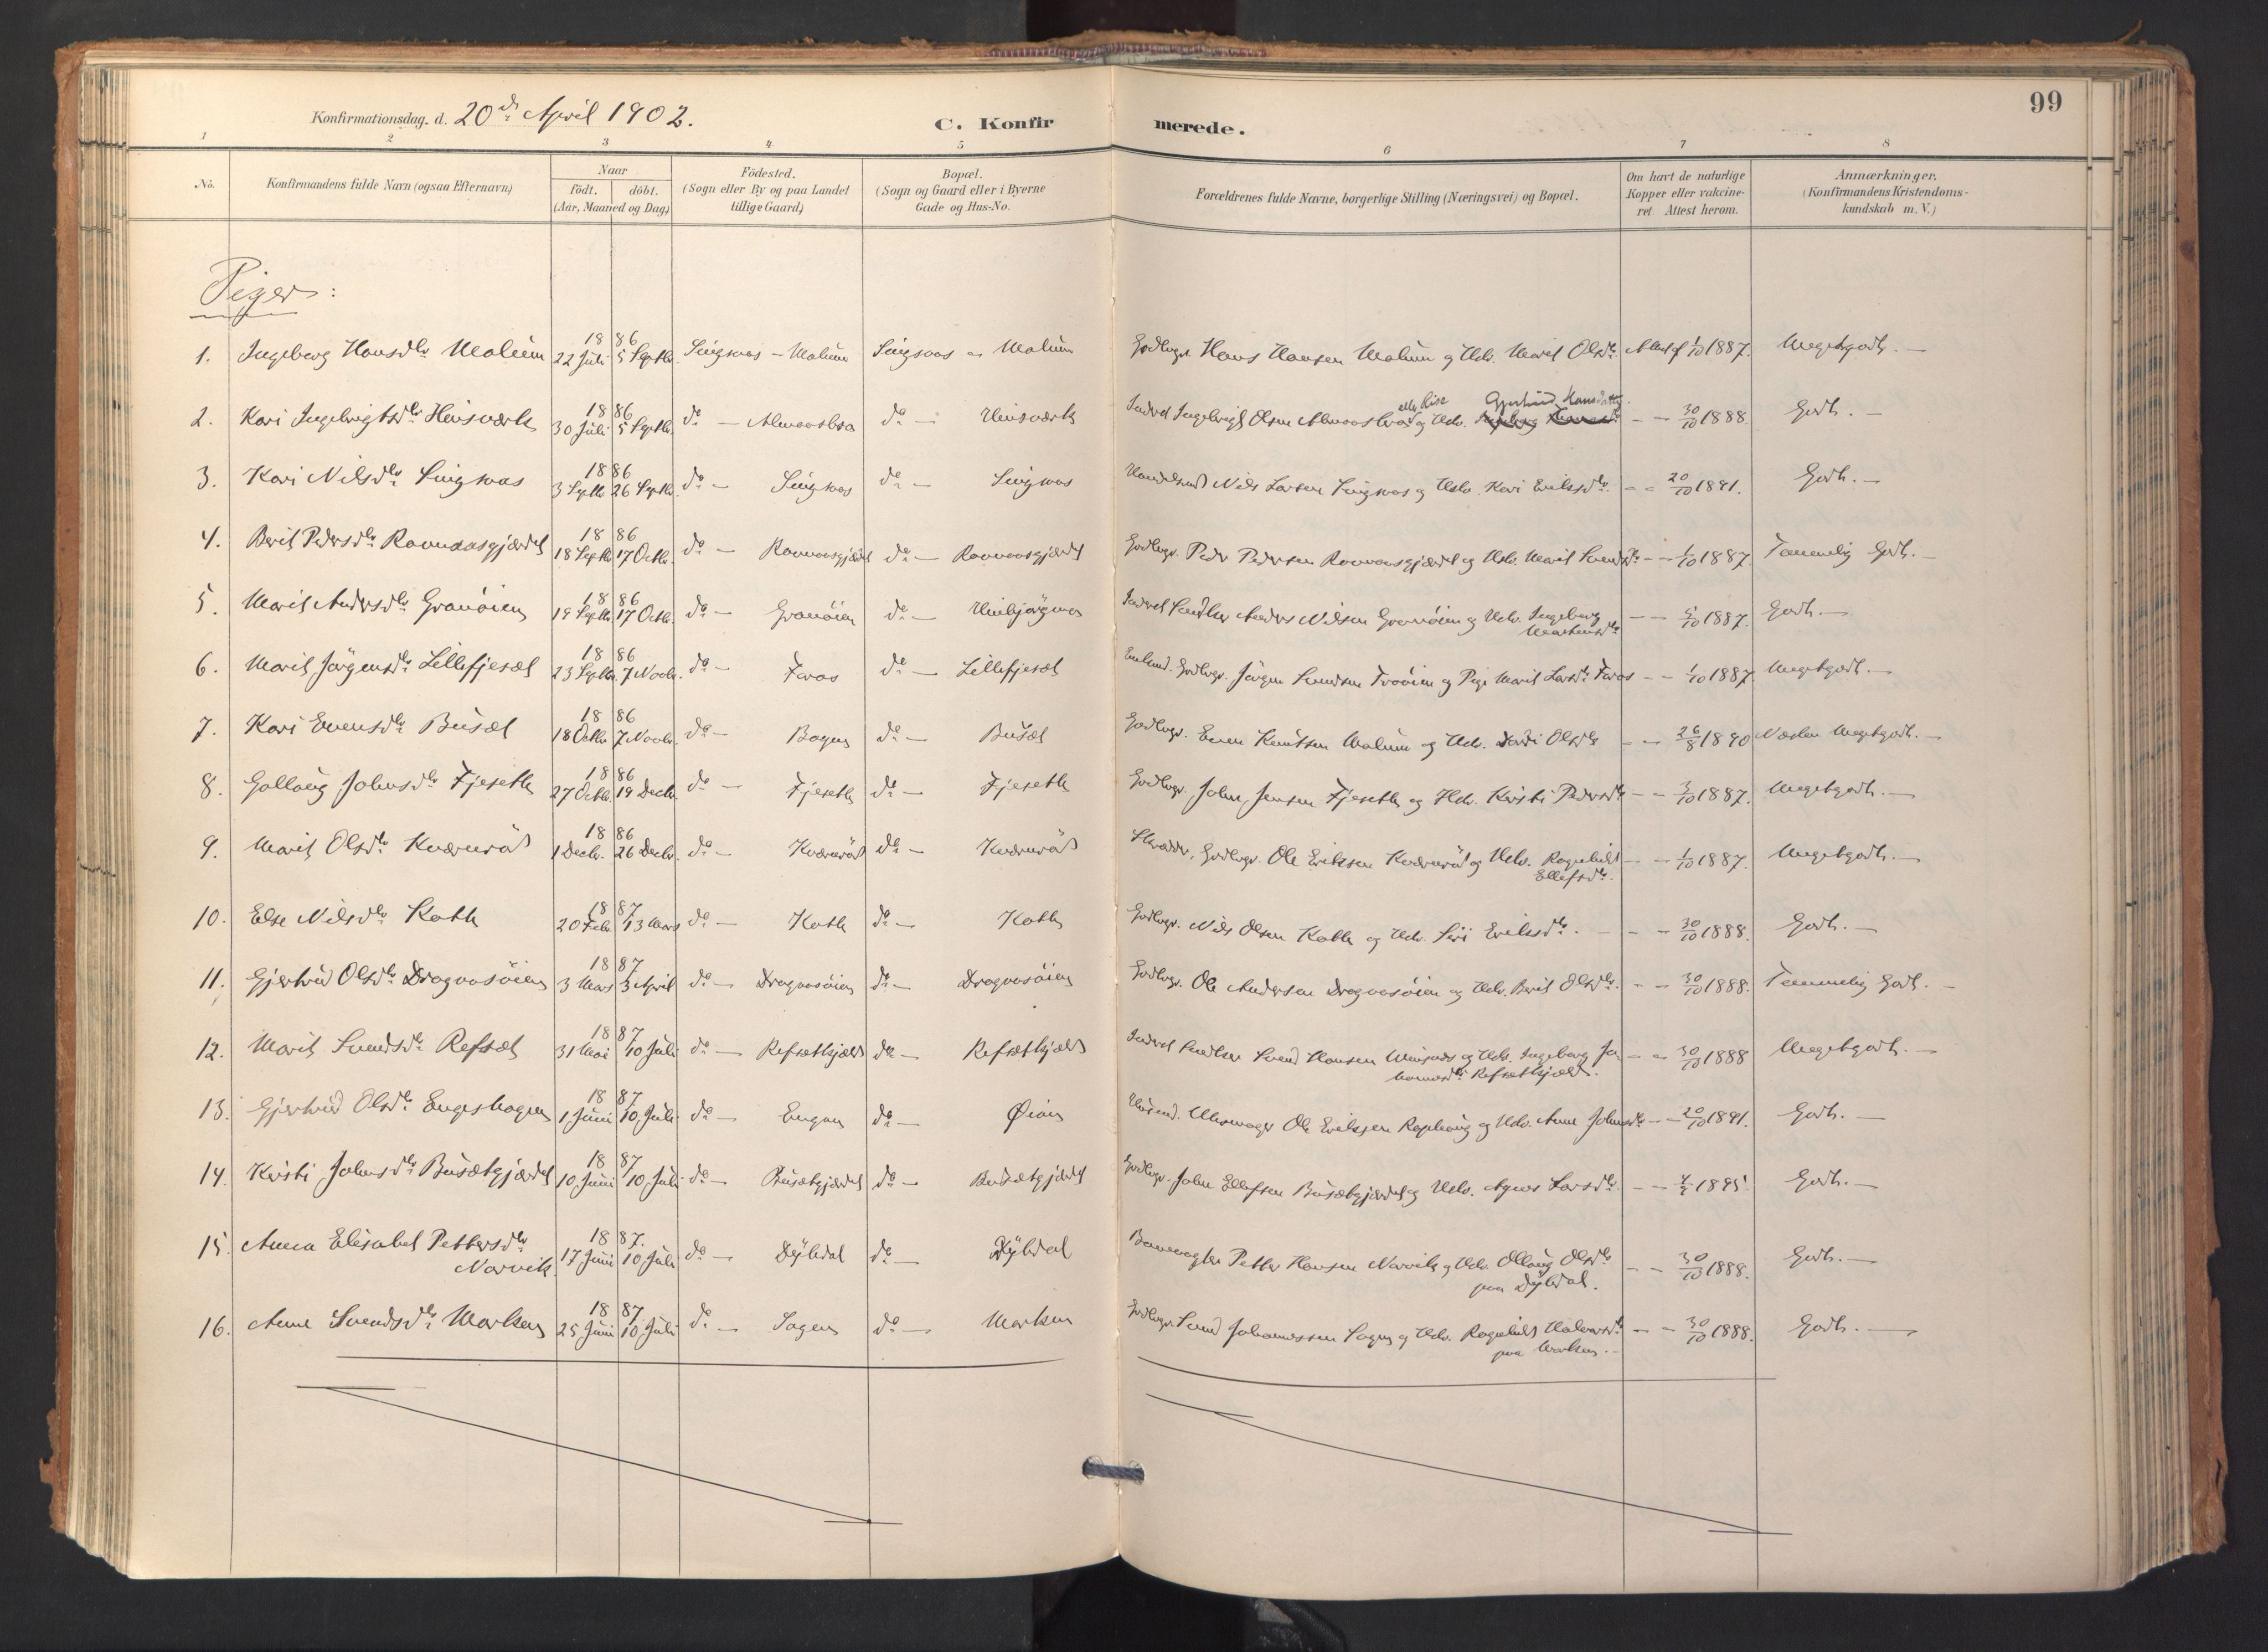 99
Konfirmationsdag. d. 20de April 1902.
C. Konfirmerede.
1 2 3 4 5 6 7 8
No. Konfirmandens fulde Navn (ogsaa Efternavn) Naar födt. döbt. (Aar, Maaned og Dag) Födested. (Sogn eller By og paa Landet tillige Gaard) Bopæl. (Sogn og Gaard eller i Byerne Gade og Hus-No. Forældrenes fulde Navne, borgerlige Stilling (Næringsvei) og Bopæl. Om havt de naturlige Kopper eller vakcineret. Attest herom. Anmærkninger. (Konfirmandens Kristendomskundskab m. V.)
Piger:
1. Ingeborg Hansdtr Molum 1886 22 Juli 5 Septbr. Singsaas - Molum Singsaas - Molum Gaardbrgr. Hans Hansen Molum og Hstr. Marit Olsdtr. Attest 1/10 1887. Megetgodt. —
2. Kari Ingebrigtsdtr 1886 30 Juli 5 Septbr. do — Almaasbro do — Inderst Ingebrigt Olsen Almaasbro eller Rise og Hstr. Gjertrud Hansdatter — — 30/10 1888. Godt. —
3. Kari Nilsdtr Singsaas 1886 3 Septbr 26 Septbr. do — Singsaas do — Singsaas Handelsmd Nils Larsen Singsaas og Hstr. Kari Eriksdtr. — — 20/10 1891. Godt. —
4. Berit Pedersdtr Ramnaasgjærdet 1886 18 Septbr 17 Octbr. do — Ramnaasgjærdet do — Ramnaasgjærdet Gaardbrgr. Peder Pedersen Ramnaasgjærdet og Hstr. Marit Svendsdtr — — 1/10 1887. Temmelig Godt. —
5. Marit Andersdtr Granøien 1886 19 Septbr 17 Octbr. do — Granøien do — Inderst Anders Nilsen Granøien og Hstr. Ingeborg — — 1887. Godt. —
6. Marit Jørgensdtr Lillefjeset 1886 23 Septbr. 7 Novbr. do — Foros do — Lillefjeset Gaardbrgr. Jørgen Svendsen og Pige Marit Larsdtr Foros — — 1/10 1887 Megetgodt. —
7. Kari Evensdtr Busæt 1886 18 Octbr 7 Novbr. do — Bogen do — Busæt Gaardbrgr. Even Knutsen Molum og Hstr. Olsdtr — — 26/8 1890 Næsten Megetgodt. —
8. Gollaug Johnsdtr Fjeseth 1886 27 Octbr. 19 Decbr. do — Fjeseth do — Fjeseth Gaardbrgr. John Jensen Fjeseth og Hstr. Kirsti Pedersdtr — — 3/10 1887. Megetgodt. —
9. Marit Olsdtr Kværnrød 1886 1 Decbr. 26 Decbr. do — Kværnrød do — Kværnrød Gaardbrgr. Ole Eriksen Kværnrød og Hstr. Ragnhild Ellefsdtr. — — 1/10 1887. Megetgodt. —
10. Else Nilsdtr Koth 1887 20 Febr. 13 Mars do — Koth do — Koth Gaardbrgr. Nils Olsen Koth og Hstr. Siri Eriksdtr. — — 30/10 1888. Godt. —
11. Gjertrud Olsdtr Dragaasøien 1887 3 Mars 3 April do — Dragaasøien do — Dragaasøien Gaardbrgr. Ole Andersen Dragaasøien og Hstr. Berit Olsdtr. — — 30/10 1888. Temmelig Godt. —
12. Marit Svendsdtr Refset 1887 31 Mai 10 Juli do — Refsethkjeld do — Refsethkjeld Inderst Svend Hansen og Hstr. Ingeborg Refsethkjeld. — — 30/10 1888 Megetgodt. —
13. Gjertrud Olsdtr Engeshagen 1887 1 Juni 10 Juli do — Engan do — Øien Ole Eriksen Raphaug og Hstr. Anne Johnsdtr — — 20/10 1891. Godt. —
14. Kirsti Johnsdtr Busætgjærdet 1887 10 Juni 10 Juli do — Busætgjærdet do — Busætgjærdet Gaardbrgr. John Ellefsen Busætgjærdet og Hstr. Agnes Larsdtr. — — 1895 Godt. —
15. Anna Elisabet Pettersdtr Narvik. 1887. 17 Juni 10 Juli do — Dybdal do — Dybdal Banevogter Petter Hansen Narvik og Hstr. Ollaug Olsdtr paa Dybdal. — — 30/10 1888. Godt. —
16. Anne Svendsdtr Morken 1887. 25 Juni 10 Juli do — Sagen do — Morken Gaardbrgr. Svend Johannessen Sagen og Hstr. Ragnhild Halvorsdtr paa Morken. — — — 30/10 1888. Godt. —